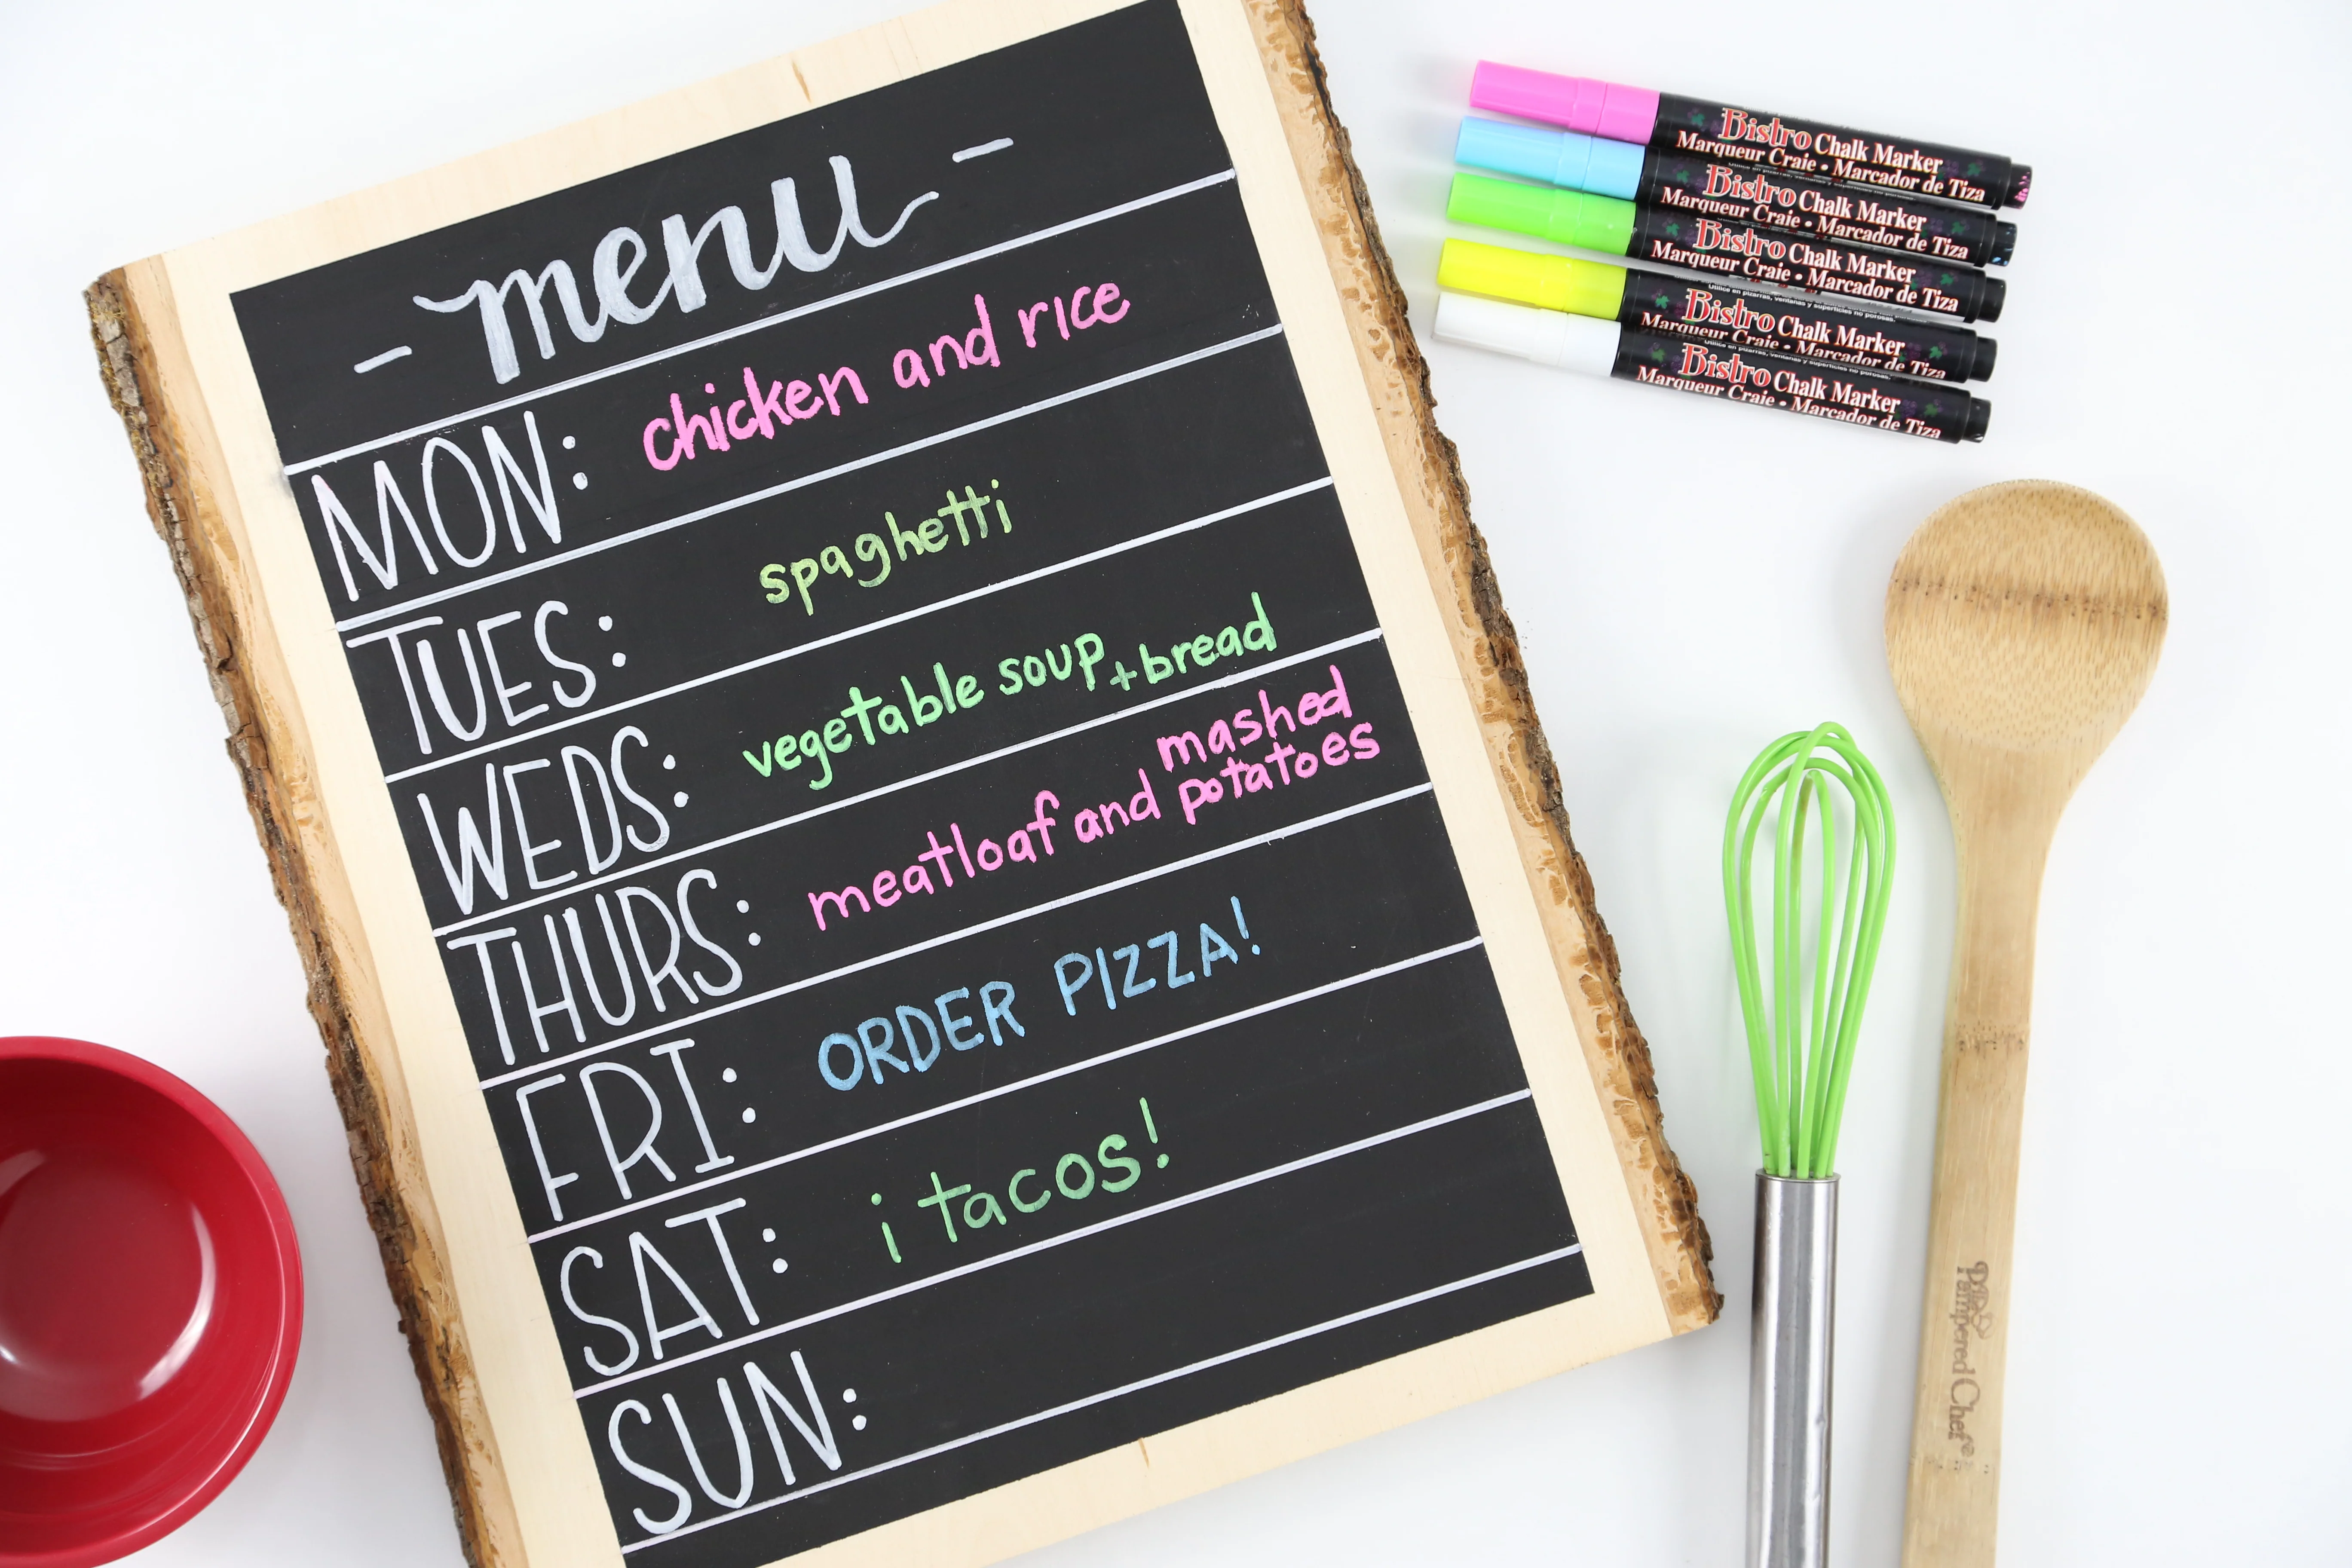 - menu -
MON: chicken and rice
TUES: spaghetti
WEDS: vegetable soup + bread
THURS: meatloaf and mashed potatoes
FRI: ORDER PIZZA!
SAT: ¡ tacos!
SUN:
Bistro Chalk Marker
Marqueur Craie • Marcador de Tiza
Bistro Chalk Marker
Marqueur Craie • Marcador de Tiza
Bistro Chalk Marker
Marqueur Craie • Marcador de Tiza
Utilice en pizarras, ventanas y superficies no porosas.
Bistro Chalk Marker
Marqueur Craie • Marcador de Tiza
Utilice en pizarras, ventanas y superficies no porosas.
Bistro Chalk Marker
Marqueur Craie • Marcador de Tiza
The
Pampered Chef